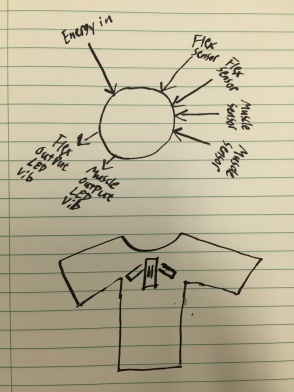 Energy in
Flex
Sensor
Flex
Sensor
Muscle
Sensor
Muscle
Sensor
Flex
Output
LED
Vib
Muscle
Output
LED
Vib